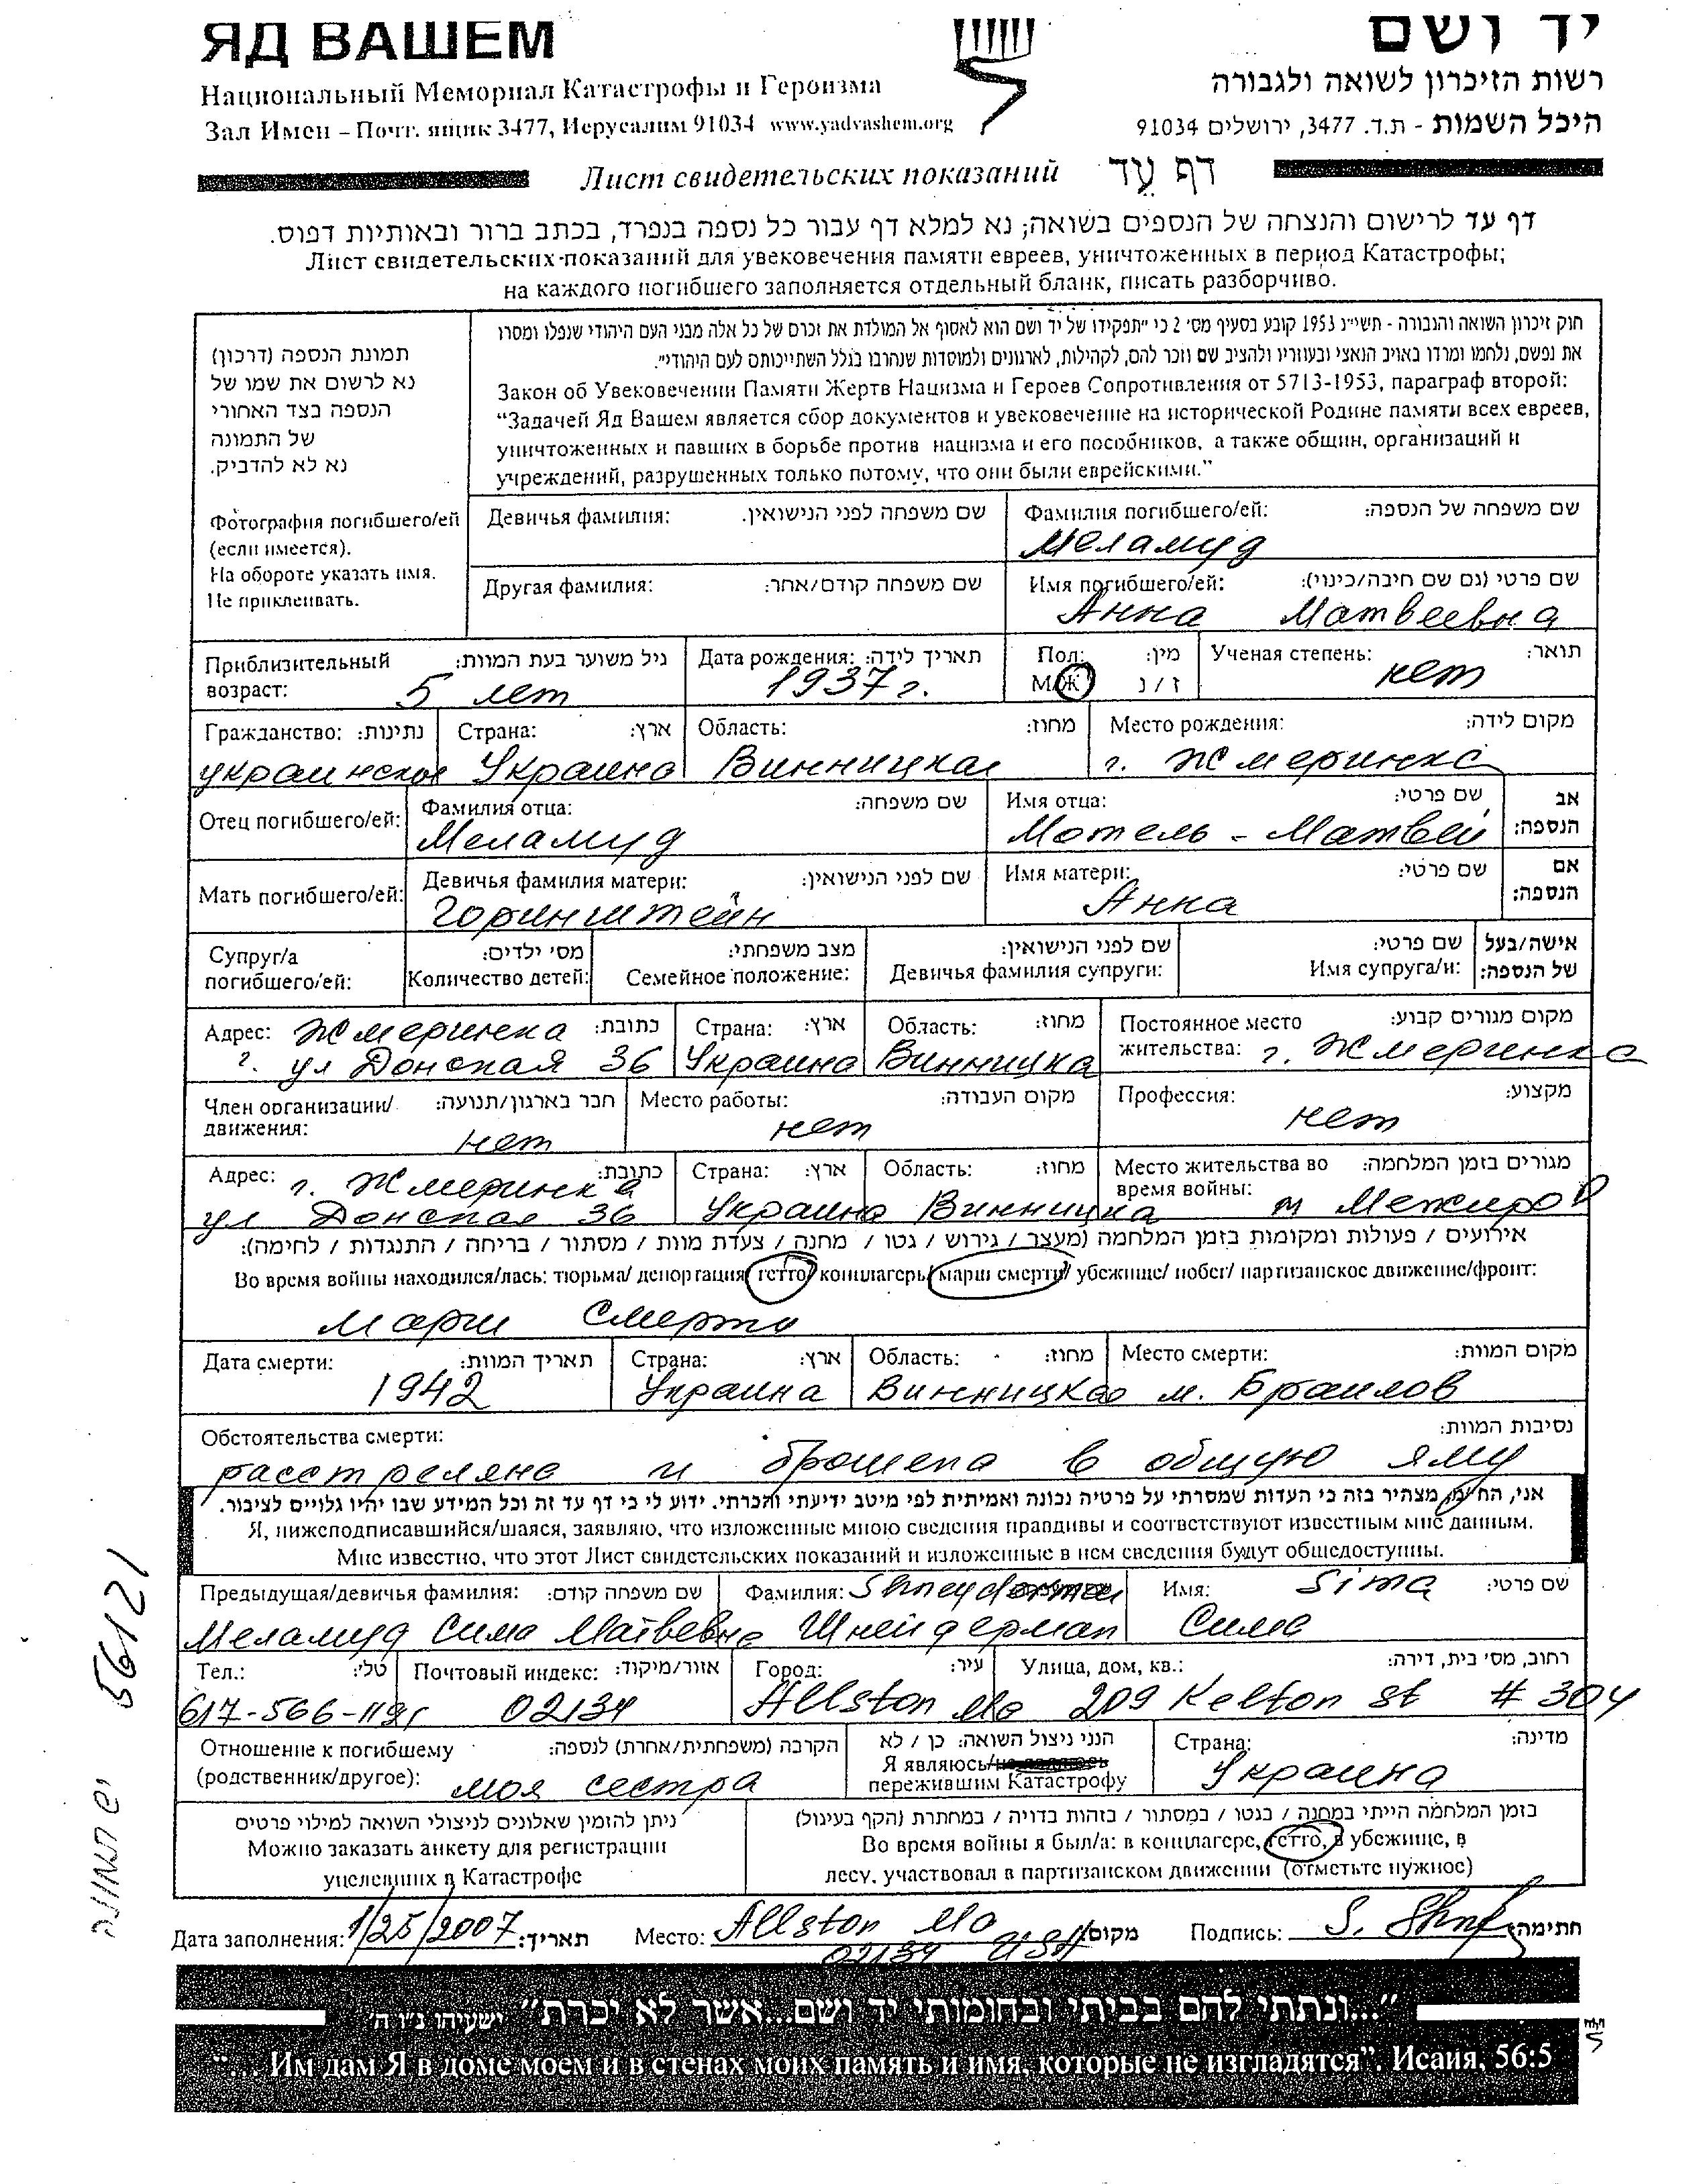 ЯД ВАШЕМ
יד ושם
Национальный Мемориал Катастрофы и Героизма
רשות הזיכרון לשואה ולגבורה
Зал Имен – Почт. ящик 3477, Иерусалим 91034 www.yadvashem.org
היכל השמות - ת.ד. 3477, ירושלים 91034
Лист свидетельских показаний דף עֵד
דף עד לרישום והנצחה של הנספים בשואה; נא למלא דף עבור כל נספה בנפרד, בכתב ברור ובאותיות דפוס.
Лист свидетельских показаний для увековечения памяти евреев, уничтоженных в период Катастрофы;
на каждого погибшего заполняется отдельный бланк, писать разборчиво.
תמונת הנספה (דרכון)
נא לרשום את שמו של
הנספה בצד האחורי
של התמונה
נא לא להדביק.
Фотография погибшего/ей
(если имеется).
На обороте указать имя.
Не приклеивать.
חוק זיכרון השואה והגבורה - תשי"ג 1953 קובע בסעיף מס' 2 כי "תפקידו של יד ושם הוא לאסוף אל המולדת את זכרם של כל אלה מבני העם היהודי שנפלו ומסרו
את נפשם, נלחמו ומרדו באויב הנאצי ובעוזריו ולהציב שם וזכר להם, לקהילות, לארגונים ולמוסדות שנחרבו בגלל השתייכותם לעם היהודי".
Закон об Увековечении Памяти Жертв Нацизма и Героев Сопротивления от 5713-1953, параграф второй:
“Задачей Яд Вашем является сбор документов и увековечение на исторической Родине памяти всех евреев,
уничтоженных и павших в борьбе против нацизма и его пособников, а также общин, организаций и
учреждений, разрушенных только потому, что они были еврейскими.”
Девичья фамилия: שם משפחה לפני הנישואין. Фамилия погибшего/ей: שם משפחה של הנספה:
Меламуд
Другая фамилия: שם משפחה קודם/אחר: Имя погибшего/ей: שם פרטי (גם שם חיבה/כינוי):
Анна Матвеевна
Приблизительный возраст: גיל משוער בעת המוות: Дата рождения: תאריך לידה: Пол: מין: М/Ж ז / נ Ученая степень: תואר:
5 лет 1937 г. нет
Гражданство: נתינות: Страна: ארץ: Область: מחוז: Место рождения: מקום לידה:
украинское Украина Винницкая г. Жмеринка
Отец погибшего/ей: Фамилия отца: שם משפחה: Имя отца: שם פרטי: אב הנספה:
Меламуд Мотель - Матвей
Мать погибшего/ей: Девичья фамилия матери: שם לפני הנישואין: Имя матери: שם פרטי: אם הנספה:
Горинштейн Анна
Супруг/а погибшего/ей: מס' ילדים: Количество детей: מצב משפחתי: Семейное положение: שם לפני הנישואין: Девичья фамилия супруги: שם פרטי: Имя супруга/и: אישה/בעל של הנספה:
Адрес: כתובת: Страна: ארץ: Область: מחוז: Постоянное место жительства: מקום מגורים קבוע:
Жмеринка
г. ул Донская 36 Украина Винницка г. Жмеринка
Член организации/движения: חבר בארגון/תנועה: Место работы: מקום העבודה: Профессия: מקצוע:
нет нет нет
Адрес: כתובת: Страна: ארץ: Область: מחוז: Место жительства во время войны: מגורים בזמן המלחמה:
г. Жмеринка
ул Донская 36 Украина Винницка м Межиров
אירועים / פעולות ומקומות בזמן המלחמה (מעצר / גירוש / גטו / מחנה / צעדת מוות / מסתור / בריחה / התנגדות / לחימה):
Во время войны находился/лась: тюрьма/ депортация/ гетто/ концлагерь/ марш смерти/ убежище/ побег/ партизанское движение/фронт:
марш смерти
Дата смерти: תאריך המוות: Страна: ארץ: Область: מחוז: Место смерти: מקום המוות:
1942 Украина Винницкая м. Браилов
Обстоятельства смерти: נסיבות המוות:
расстреляна и брошена в общую яму
אני, החי/מ, מצהיר בזה כי העדות שמסרתי על פרטיה נכונה ואמיתית לפי מיטב ידיעתי והכרתי. ידוע לי כי דף עד זה וכל המידע שבו יהיו גלויים לציבור.
Я, нижеподписавшийся/шаяся, заявляю, что изложенные мною сведения правдивы и соответствуют известным мне данным.
Мне известно, что этот Лист свидетельских показаний и изложенные в нем сведения будут общедоступны.
Предыдущая/девичья фамилия: שם משפחה קודם: Фамилия: Shneyderman Имя: Sima שם פרטי:
Меламуд Сима Матвевна Шнейдерман Сима
Тел.: טל': Почтовый индекс: אזור/מיקוד: Город: עיר: Улица, дом, кв.: רחוב, מס' בית, דירה:
02134 Allston Ma 209 Kelton st # 304
Отношение к погибшему (родственник/другое): הקרבה (משפחתית/אחרת) לנספה: הנני ניצול השואה: כן / לא Я являюсь/ пережившим Катастрофу Страна: מדינה:
моя сестра Украина
ניתן להזמין שאלונים לניצולי השואה למילוי פרטים
Можно заказать анкету для регистрации
уцелевших в Катастрофе
בזמן המלחמה הייתי במחנה / בגטו / במסתור / בזהות בדויה / במחתרת (הקף בעיגול)
Во время войны я был/а: в концлагере, гетто, в убежище, в
лесу, участвовал в партизанском движении (отметьте нужное)
Дата заполнения: 1/25/2007 תאריך: Место: Allston Ma מקום: Подпись: S. חתימה:
02134 USA
"...ונתתי להם בביתי ובחומותי יד ושם...אשר לא יכרת" ישעיהו נ"ו ה'
“... Им дам Я в доме моем и в стенах моих память и имя, которые не изгладятся”. Исаия, 56:5
56121
יש תמונה